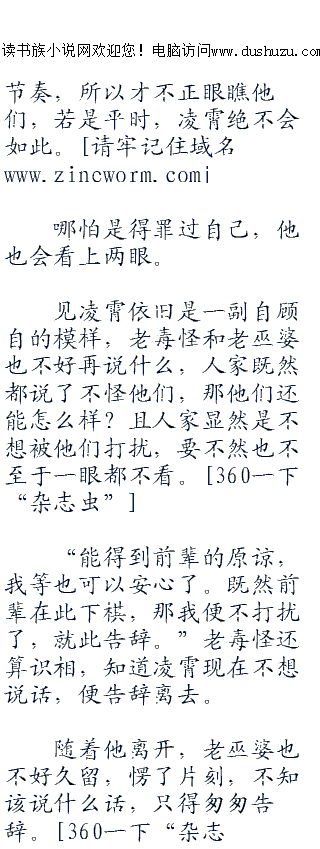 读书族小说网欢迎您！电脑访问www.dushuzu.com
节奏，所以才不正眼瞧他
们，若是平时，凌霄绝不会
如此。[请牢记住域名
www.zincworm.com|
哪怕是得罪过自己，他
也会看上两眼。
见凌霄依旧是一副自顾
自的模样，老毒怪和老巫婆
也不好再说什么，人家既然
都说了不怪他们，那他们还
能怎么样？且人家显然是不
想被他们打扰，要不然也不
至于一眼都不看。[360一下
“杂志虫”]
“能得到前辈的原谅，
我等也可以安心了。既然前
辈在此下棋，那我便不打扰
了，就此告辞。”老毒怪还
算识相，知道凌霄现在不想
说话，便告辞离去。
随着他离开，老巫婆也
不好久留，愣了片刻，不知
该说什么话，只得匆匆告
辞。[360一下“杂志